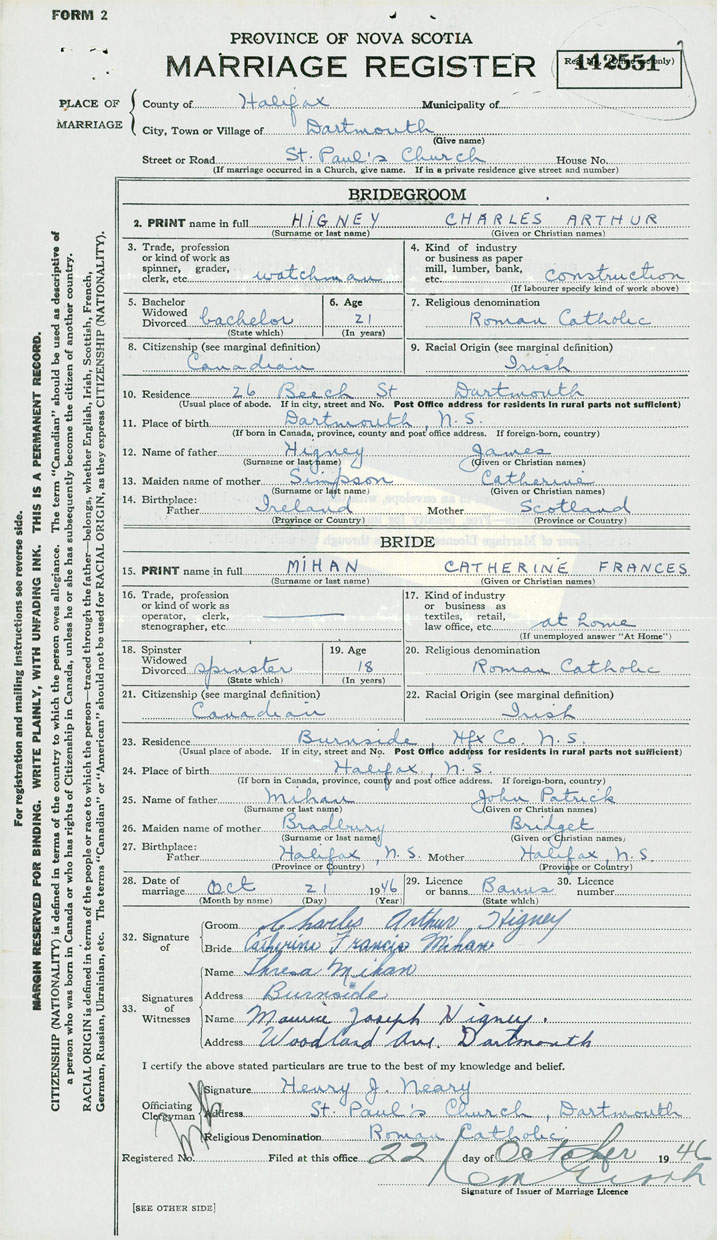 FORM 2
PROVINCE OF NOVA SCOTIA
MARRIAGE REGISTER
Reg. No. (Office use only)
142551
PLACE OF MARRIAGE
County of Halifax Municipality of
City, Town or Village of Dartmouth
(Give name)
Street or Road St. Paul's Church House No.
(If marriage occurred in a Church, give name. If in a private residence give street and number)
BRIDEGROOM
2. PRINT name in full HIGNEY CHARLES ARTHUR
(Surname or last name) (Given or Christian names)
3. Trade, profession or kind of work as spinner, grader, clerk, etc. watchman
4. Kind of industry or business as paper mill, lumber, bank, etc. construction
(If labourer specify kind of work above)
5. Bachelor Widowed Divorced bachelor
(State which)
6. Age 21
(In years)
7. Religious denomination
Roman Catholic
8. Citizenship (see marginal definition)
Canadian
9. Racial Origin (see marginal definition)
Irish
10. Residence 26 Beech St Dartmouth
(Usual place of abode. If in city, street and No. Post Office address for residents in rural parts not sufficient)
11. Place of birth Dartmouth, N.S.
(If born in Canada, province, county and post office address. If foreign-born, country)
12. Name of father Higney James
(Surname or last name) (Given or Christian names)
13. Maiden name of mother Simpson Catherine
(Surname or last name) (Given or Christian names)
14. Birthplace: Father Ireland Mother Scotland
(Province or Country) (Province or Country)
BRIDE
15. PRINT name in full MIHAN CATHERINE FRANCES
(Surname or last name) (Given or Christian names)
16. Trade, profession or kind of work as operator, clerk, stenographer, etc.
17. Kind of industry or business as textiles, retail, law office, etc. at home
(If unemployed answer "At Home")
18. Spinster Widowed Divorced spinster
(State which)
19. Age 18
(In years)
20. Religious denomination
Roman Catholic
21. Citizenship (see marginal definition)
Canadian
22. Racial Origin (see marginal definition)
Irish
23. Residence Burnside, Hfx Co. N.S.
(Usual place of abode. If in city, street and No. Post Office address for residents in rural parts not sufficient)
24. Place of birth Halifax, N.S.
(If born in Canada, province, county and post office address. If foreign-born, country)
25. Name of father Mihan John Patrick
(Surname or last name) (Given or Christian names)
26. Maiden name of mother Bradbury Bridget
(Surname or last name) (Given or Christian names)
27. Birthplace: Father Halifax, N.S. Mother Halifax, N.S.
(Province or Country) (Province or Country)
28. Date of marriage Oct 21 1946
(Month by name) (Day) (Year)
29. Licence or banns Banns
(State which)
30. Licence number
32. Signature of
Groom Charles Arthur Higney
Bride Catherine Francis Mihan
33. Signatures of Witnesses
Name Thresa Mihan
Address Burnside
Name Maurice Joseph Higney.
Address Woodland Ave. Dartmouth
I certify the above stated particulars are true to the best of my knowledge and belief.
Officiating Clergyman
Signature Henry J. Neary
Address St. Paul's Church, Dartmouth
Religious Denomination Roman Catholic
Registered No. Filed at this office 22 day of October 1946
Signature of Issuer of Marriage Licence
[SEE OTHER SIDE]
For registration and mailing instructions see reverse side.
MARGIN RESERVED FOR BINDING. WRITE PLAINLY, WITH UNFADING INK. THIS IS A PERMANENT RECORD.
CITIZENSHIP (NATIONALITY) is defined in terms of the country to which the person owes allegiance. The term "Canadian" should be used as descriptive of
a person who was born in Canada or who has rights of Citizenship in Canada, unless he or she has subsequently become the citizen of another country.
RACIAL ORIGIN is defined in terms of the people or race to which the person—traced through the father—belongs, whether English, Irish, Scottish, French,
German, Russian, Ukrainian, etc. The terms "Canadian" or "American" should not be used for RACIAL ORIGIN, as they express CITIZENSHIP (NATIONALITY).